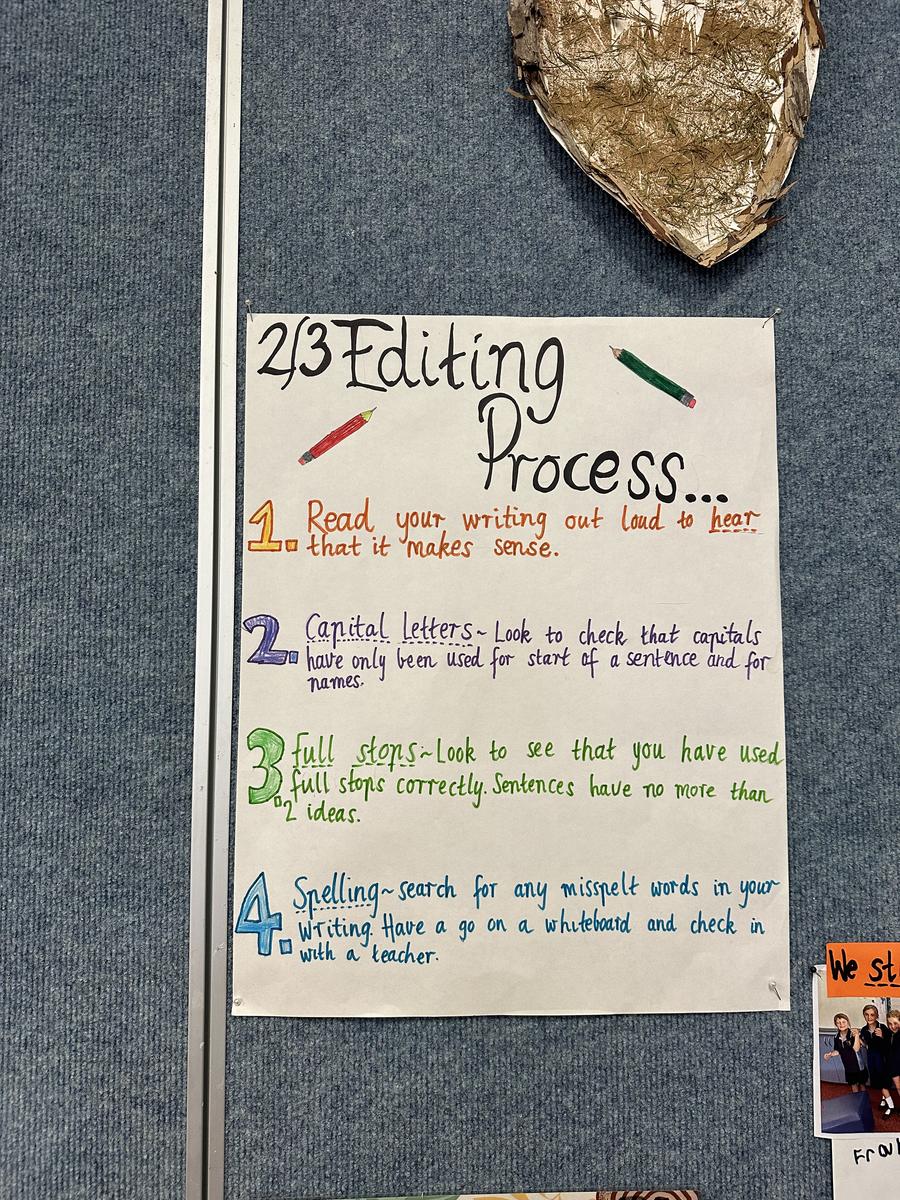 2/3 Editing
Process...
1. Read your writing out loud to hear
that it makes sense.
2. Capital Letters~ Look to check that capitals
have only been used for start of a sentence and for
names.
3. full stops~ Look to see that you have used
full stops correctly. Sentences have no more than
2 ideas.
4. Spelling~ search for any misspelt words in your
writing. Have a go on a whiteboard and check in
with a teacher.
We